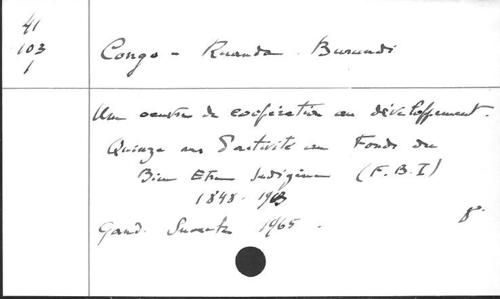 41
103
1
Congo - Ruanda - Burundi
Une oeuvre de coopération au développement.
Quinze ans d'activité du Fonds du
Bien Etre Indigène (F.B.I)
1948 - 1963
Gand. 1965.
8°